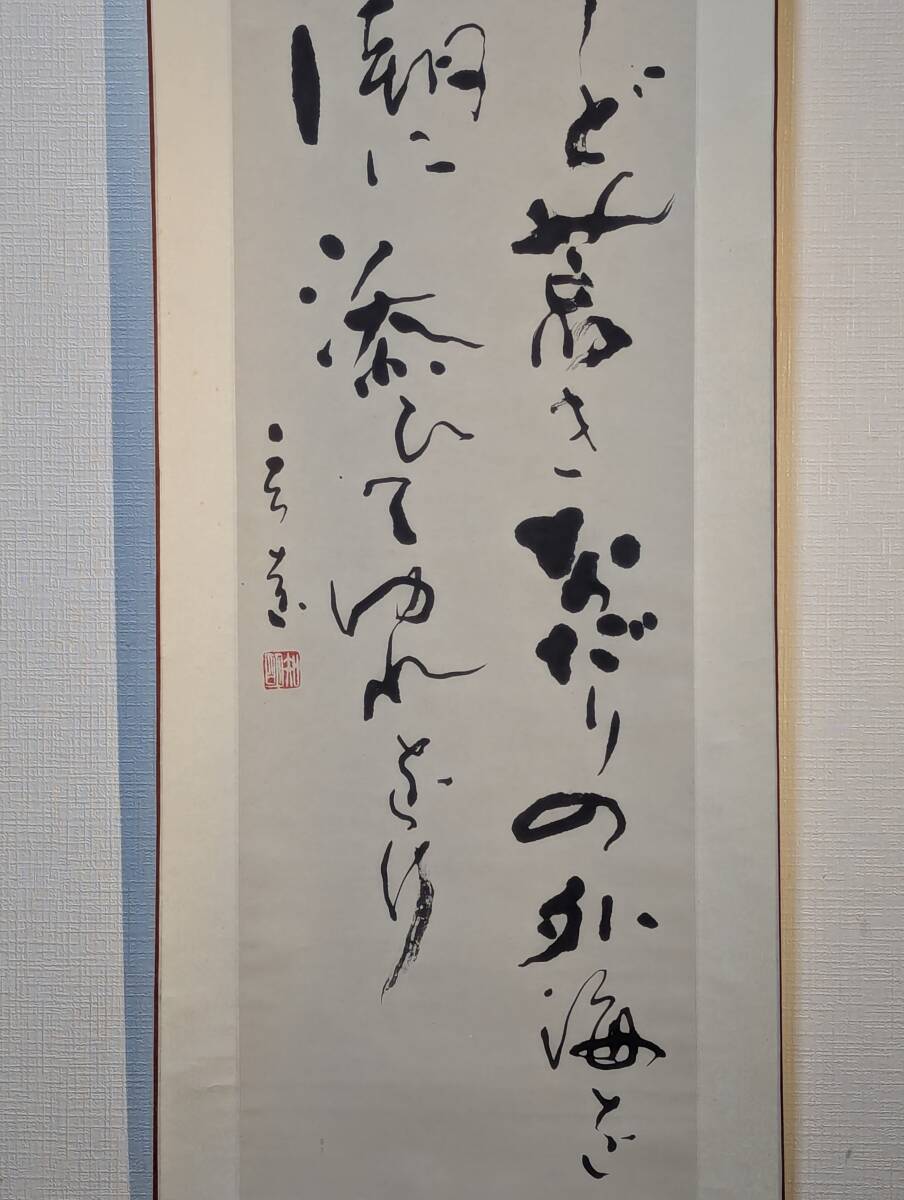 ど蒼きなだりの外海を
潮に添ひてゆれをり